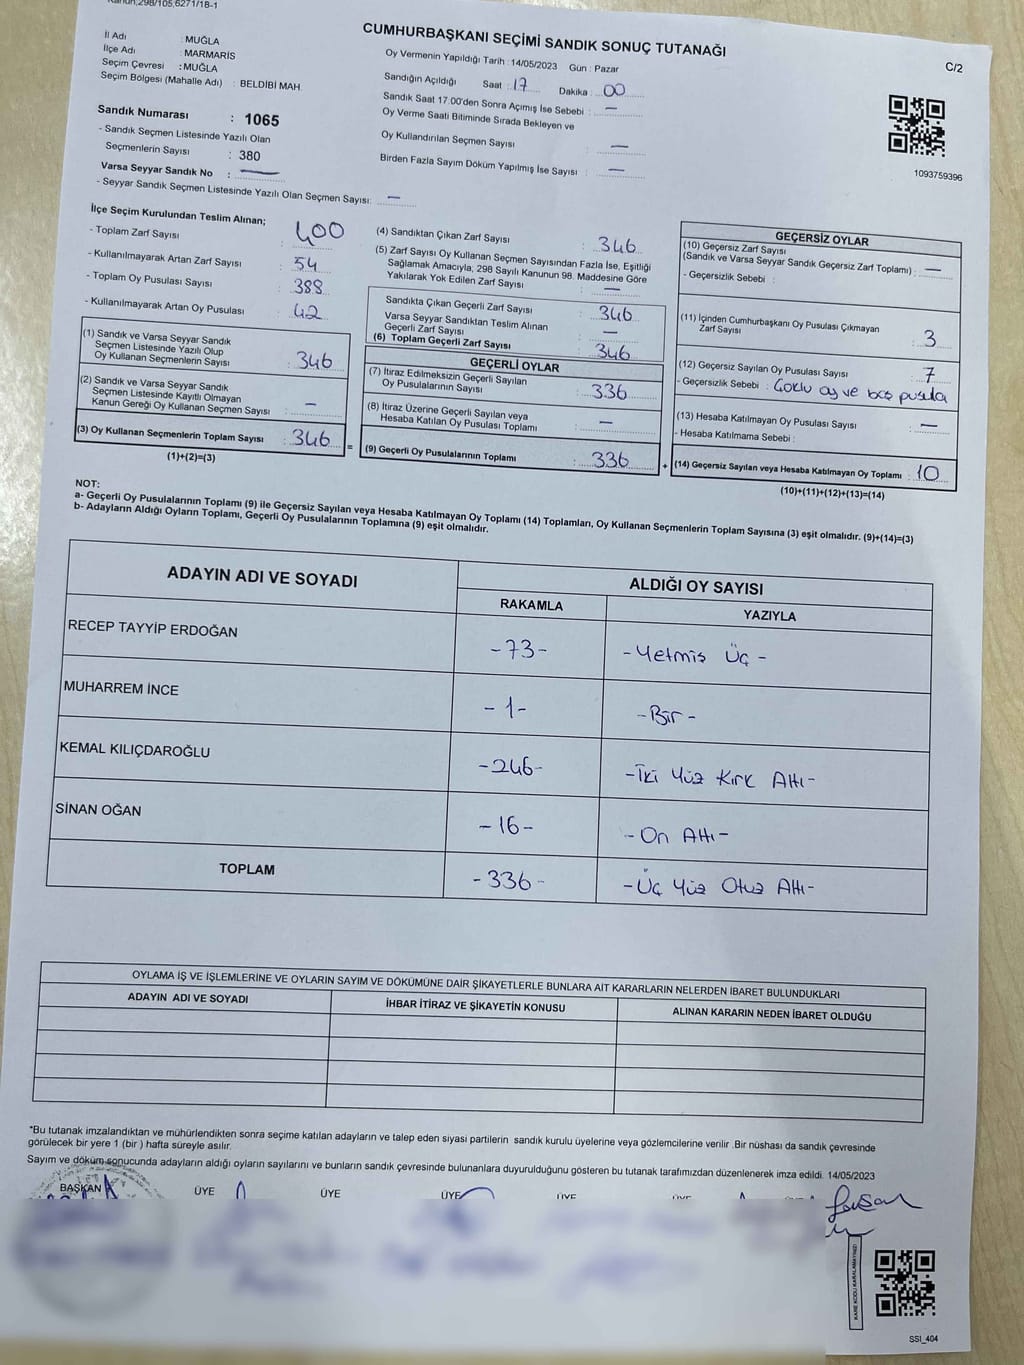 Kanun;298/105,6271/18-1
CUMHURBAŞKANI SEÇİMİ SANDIK SONUÇ TUTANAĞI
C/2
İl Adı : MUĞLA
İlçe Adı : MARMARİS
Seçim Çevresi : MUĞLA
Seçim Bölgesi (Mahalle Adı) : BELDİBİ MAH.
Oy Vermenin Yapıldığı Tarih : 14/05/2023 Gün : Pazar
Sandığın Açıldığı Saat : 17 Dakika : 00
Sandık Saat 17.00'den Sonra Açımış İse Sebebi : —
Oy Verme Saati Bitiminde Sırada Bekleyen ve
Oy Kullandırılan Seçmen Sayısı : —
Birden Fazla Sayım Döküm Yapılmış İse Sayısı : —
1093759396
Sandık Numarası : 1065
- Sandık Seçmen Listesinde Yazılı Olan
Seçmenlerin Sayısı : 380
Varsa Seyyar Sandık No : —
- Seyyar Sandık Seçmen Listesinde Yazılı Olan Seçmen Sayısı: —
İlçe Seçim Kurulundan Teslim Alınan;
- Toplam Zarf Sayısı : 400
- Kullanılmayarak Artan Zarf Sayısı : 54
- Toplam Oy Pusulası Sayısı : 388
- Kullanılmayarak Artan Oy Pusulası : 42
(1) Sandık ve Varsa Seyyar Sandık
Seçmen Listesinde Yazılı Olup
Oy Kullanan Seçmenlerin Sayısı : 346
(2) Sandık ve Varsa Seyyar Sandık
Seçmen Listesinde Kayıtlı Olmayan
Kanun Gereği Oy Kullanan Seçmen Sayısı : —
(3) Oy Kullanan Seçmenlerin Toplam Sayısı : 346 =
(1)+(2)=(3)
(4) Sandıktan Çıkan Zarf Sayısı : 346
(5) Zarf Sayısı Oy Kullanan Seçmen Sayısından Fazla İse, Eşitliği
Sağlamak Amacıyla; 298 Sayılı Kanunun 98. Maddesine Göre
Yakılarak Yok Edilen Zarf Sayısı : —
Sandıkta Çıkan Geçerli Zarf Sayısı : 346
Varsa Seyyar Sandıktan Teslim Alınan
Geçerli Zarf Sayısı : —
(6) Toplam Geçerli Zarf Sayısı : 346
GEÇERLİ OYLAR
(7) İtiraz Edilmeksizin Geçerli Sayılan
Oy Pusulalarının Sayısı : 336
(8) İtiraz Üzerine Geçerli Sayılan veya
Hesaba Katılan Oy Pusulaları Toplamı : —
(9) Geçerli Oy Pusulalarının Toplamı : 336 +
GEÇERSİZ OYLAR
(10) Geçersiz Zarf Sayısı
(Sandık ve Varsa Seyyar Sandık Geçersiz Zarf Toplamı) : —
- Geçersizlik Sebebi :
(11) İçinden Cumhurbaşkanı Oy Pusulası Çıkmayan
Zarf Sayısı : 3
(12) Geçersiz Sayılan Oy Pusulası Sayısı : 7
- Geçersizlik Sebebi : Çoklu oy ve boş pusula
(13) Hesaba Katılmayan Oy Pusulası Sayısı : —
- Hesaba Katılmama Sebebi :
(14) Geçersiz Sayılan veya Hesaba Katılmayan Oy Toplamı : 10
(10)+(11)+(12)+(13)=(14)
NOT:
a- Geçerli Oy Pusulalarının Toplamı (9) ile Geçersiz Sayılan veya Hesaba Katılmayan Oy Toplamı (14) Toplamları, Oy Kullanan Seçmenlerin Toplam Sayısına (3) eşit olmalıdır. (9)+(14)=(3)
b- Adayların Aldığı Oyların Toplamı, Geçerli Oy Pusulalarının Toplamına (9) eşit olmalıdır.
ADAYIN ADI VE SOYADI
ALDIĞI OY SAYISI
RAKAMLA YAZIYLA
RECEP TAYYİP ERDOĞAN -73- -Yetmiş Üç-
MUHARREM İNCE -1- -Bir-
KEMAL KILIÇDAROĞLU -246- -İki Yüz Kırk Altı-
SİNAN OĞAN -16- -On Altı-
TOPLAM -336- -Üç Yüz Otuz Altı-
OYLAMA İŞ VE İŞLEMLERİNE VE OYLARIN SAYIM VE DÖKÜMÜNE DAİR ŞİKAYETLERLE BUNLARA AİT KARARLARIN NELERDEN İBARET BULUNDUKLARI
ADAYIN ADI VE SOYADI İHBAR İTİRAZ VE ŞİKAYETİN KONUSU ALINAN KARARIN NEDEN İBARET OLDUĞU
*Bu tutanak imzalandıktan ve mühürlendikten sonra seçime katılan adayların ve talep eden siyasi partilerin sandık kurulu üyelerine veya gözlemcilerine verilir .Bir nüshası da sandık çevresinde
görülecek bir yere 1 (bir ) hafta süreyle asılır.
Sayım ve döküm sonucunda adayların aldığı oyların sayılarını ve bunların sandık çevresinde bulunanlara duyurulduğunu gösteren bu tutanak tarafımızdan düzenlenerek imza edildi. 14/05/2023
BAŞKAN ÜYE ÜYE ÜYE ÜYE ÜYE
KARE KODU KARALAMAYINIZ!
SSI_404